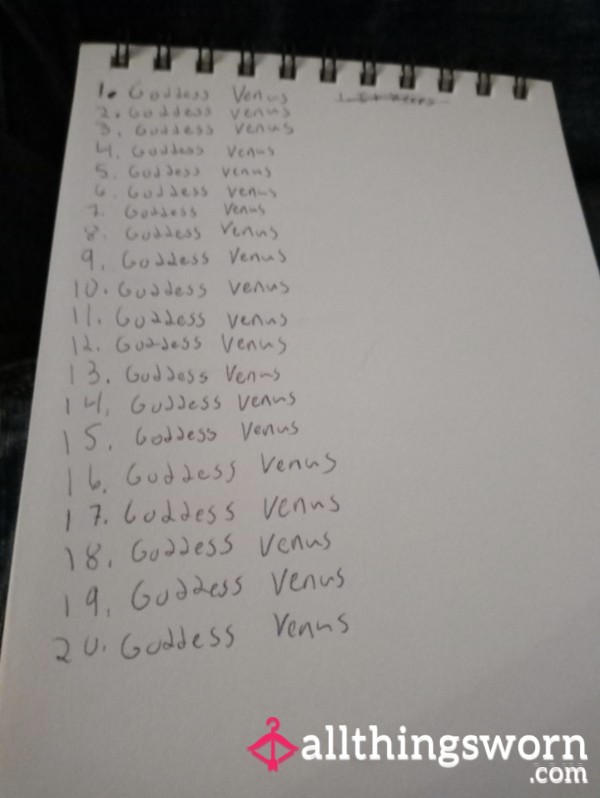 1. Goddess Venus
2. Goddess Venus
3. Goddess Venus
4. Goddess Venus
5. Goddess Venus
6. Goddess Venus
7. Goddess Venus
8. Goddess Venus
9. Goddess Venus
10. Goddess Venus
11. Goddess Venus
12. Goddess Venus
13. Goddess Venus
14. Goddess Venus
15. Goddess Venus
16. Goddess Venus
17. Goddess Venus
18. Goddess Venus
19. Goddess Venus
20. Goddess Venus
allthingsworn
.com